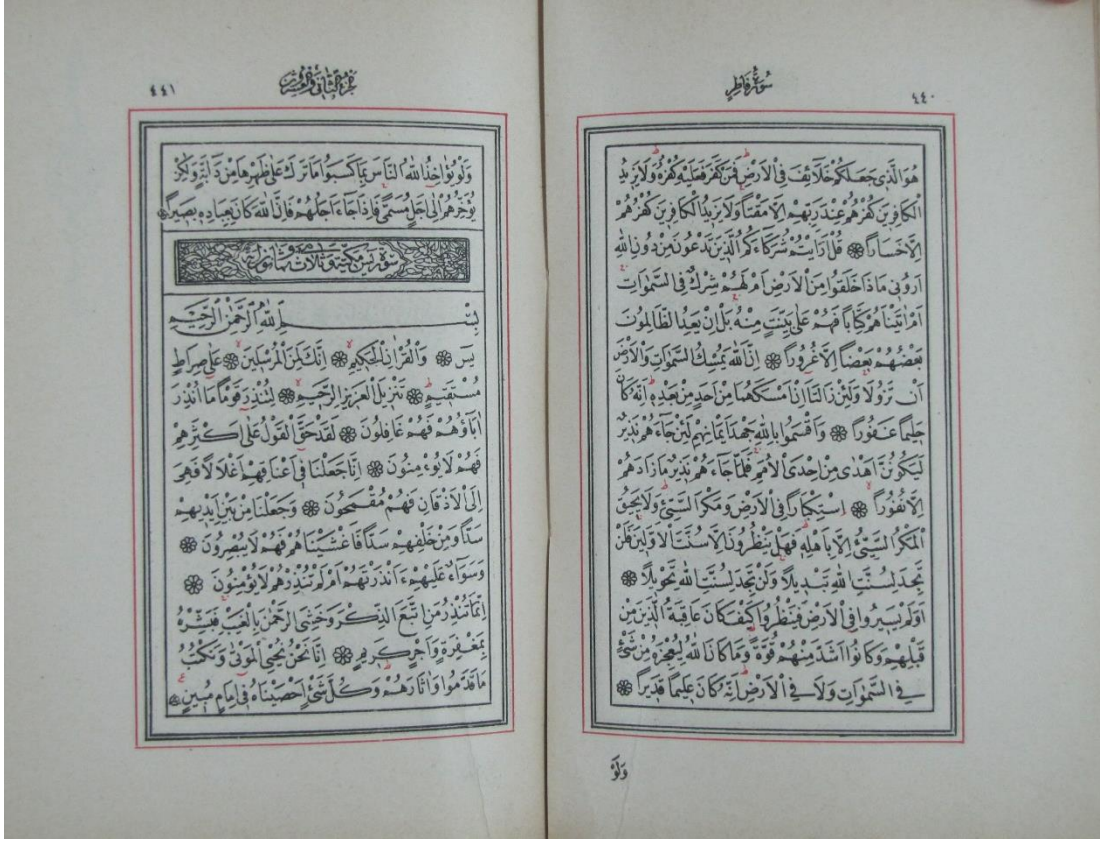 سُورَةُ فَاطِرٍ
٤٤٠
هُوَ الَّذى جَعَلَكُمْ خَلَآئِفَ فِى الْاَرْضِ فَمَنْ كَفَرَ فَعَلَيْهِ كُفْرُهُ وَلَا يَزيدُ
الْكَافِرينَ كُفْرُهُمْ عِنْدَ رَبِّهِمْ اِلَّا مَقْتًا وَلَا يَزيدُ الْكَافِرينَ كُفْرُهُمْ
اِلَّا خَسَارًا ۞ قُلْ اَرَاَيْتُمْ شُرَكَآءَكُمُ الَّذينَ تَدْعُونَ مِنْ دُونِ اللّٰهِ
اَرُونى مَاذَا خَلَقُوا مِنَ الْاَرْضِ اَمْ لَهُمْ شِرْكٌ فِى السَّمٰوَاتِ
اَمْ اٰتَيْنَاهُمْ كِتَابًا فَهُمْ عَلٰى بَيِّنَتٍ مِنْهُ بَلْ اِنْ يَعِدُ الظَّالِمُونَ
بَعْضُهُمْ بَعْضًا اِلَّا غُرُورًا ۞ اِنَّ اللّٰهَ يُمْسِكُ السَّمٰوَاتِ وَالْاَرْضَ
اَنْ تَزُولَا وَلَئِنْ زَالَتَا اِنْ اَمْسَكَهُمَا مِنْ اَحَدٍ مِنْ بَعْدِهِ اِنَّهُ كَانَ
حَليمًا غَفُورًا ۞ وَاَقْسَمُوا بِاللّٰهِ جَهْدَ اَيْمَانِهِمْ لَئِنْ جَآءَهُمْ نَذيرٌ
لَيَكُونُنَّ اَهْدٰى مِنْ اِحْدَى الْاُمَمِ فَلَمَّا جَآءَهُمْ نَذيرٌ مَازَادَهُمْ
اِلَّا نُفُورًا ۞ اِسْتِكْبَارًا فِى الْاَرْضِ وَمَكْرَ السَّيِّئِ وَلَا يَحيقُ
الْمَكْرُ السَّيِّئُ اِلَّا بِاَهْلِهِ فَهَلْ يَنْظُرُونَ اِلَّا سُنَّتَ الْاَوَّلينَ فَلَنْ
تَجِدَ لِسُنَّتِ اللّٰهِ تَبْديلًا وَلَنْ تَجِدَ لِسُنَّتِ اللّٰهِ تَحْويلًا ۞
اَوَلَمْ يَسيرُوا فِى الْاَرْضِ فَيَنْظُرُوا كَيْفَ كَانَ عَاقِبَةُ الَّذينَ مِنْ
قَبْلِهِمْ وَكَانُوا اَشَدَّ مِنْهُمْ قُوَّةً وَمَا كَانَ اللّٰهُ لِيُعْجِزَهُ مِنْ شَىْءٍ
فِى السَّمٰوَاتِ وَلَا فِى الْاَرْضِ اِنَّهُ كَانَ عَليمًا قَديرًا ۞
وَلَوْ
اَلْجُزْءُ الثَّانى وَالْعِشْرُونَ
٤٤١
وَلَوْ يُؤَاخِذُ اللّٰهُ النَّاسَ بِمَا كَسَبُوا مَا تَرَكَ عَلٰى ظَهْرِهَا مِنْ دَآبَّةٍ وَلٰكِنْ
يُؤَخِّرُهُمْ اِلٰى اَجَلٍ مُسَمًّى فَاِذَا جَآءَ اَجَلُهُمْ فَاِنَّ اللّٰهَ كَانَ بِعِبَادِهِ بَصيرًا ۞
سُورَةُ يٰس مَكِّيَّةٌ وَهِىَ ثَلَاثٌ وَثَمَانُونَ اٰيَةً
بِسْمِ اللّٰهِ الرَّحْمٰنِ الرَّحيمِ
يٰسٓ ۞ وَالْقُرْاٰنِ الْحَكيمِ ۞ اِنَّكَ لَمِنَ الْمُرْسَلينَ ۞ عَلٰى صِرَاطٍ
مُسْتَقيمٍ ۞ تَنْزيلَ الْعَزيزِ الرَّحيمِ ۞ لِتُنْذِرَ قَوْمًا مَا اُنْذِرَ
اٰبَآؤُهُمْ فَهُمْ غَافِلُونَ ۞ لَقَدْ حَقَّ الْقَوْلُ عَلٰى اَكْثَرِهِمْ
فَهُمْ لَا يُؤْمِنُونَ ۞ اِنَّا جَعَلْنَا فى اَعْنَاقِهِمْ اَغْلَالًا فَهِىَ
اِلَى الْاَذْقَانِ فَهُمْ مُقْمَحُونَ ۞ وَجَعَلْنَا مِنْ بَيْنِ اَيْديهِمْ
سَدًّا وَمِنْ خَلْفِهِمْ سَدًّا فَاَغْشَيْنَاهُمْ فَهُمْ لَا يُبْصِرُونَ ۞
وَسَوَآءٌ عَلَيْهِمْ ءَاَنْذَرْتَهُمْ اَمْ لَمْ تُنْذِرْهُمْ لَا يُؤْمِنُونَ ۞
اِنَّمَا تُنْذِرُ مَنِ اتَّبَعَ الذِّكْرَ وَخَشِىَ الرَّحْمٰنَ بِالْغَيْبِ فَبَشِّرْهُ
بِمَغْفِرَةٍ وَاَجْرٍ كَريمٍ ۞ اِنَّا نَحْنُ نُحْيِى الْمَوْتٰى وَنَكْتُبُ
مَا قَدَّمُوا وَاٰثَارَهُمْ وَكُلَّ شَىْءٍ اَحْصَيْنَاهُ فى اِمَامٍ مُبينٍ ۞